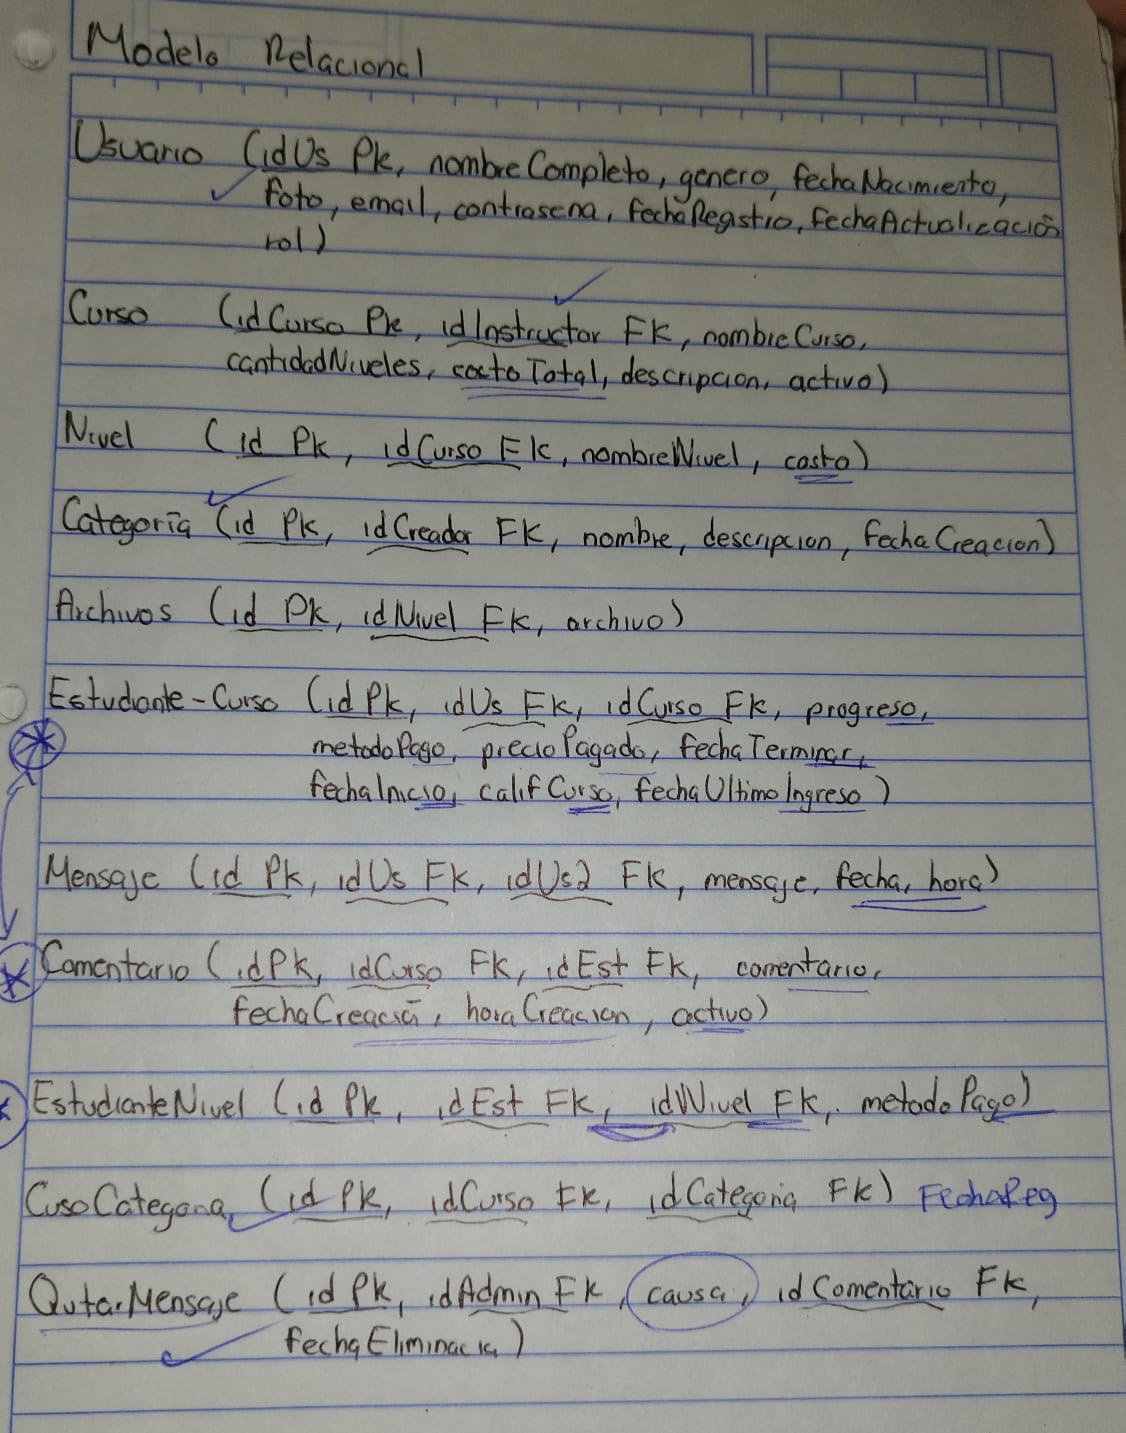 Modelo Relacional
Usuario (idUs Pk, nombreCompleto, genero, fechaNacimiento,
foto, email, contrasena, fechaRegistro, fechaActualización
rol)
Curso (idCurso Pk, idInstructor FK, nombreCurso,
cantidadNiveles, costoTotal, descripcion, activo)
Nivel (id Pk, idCurso Fk, nombreNivel, costo)
Categoria (id Pk, idCreador FK, nombre, descripcion, fechaCreacion)
Archivos (id Pk, idNivel Fk, archivo)
Estudiante-Curso (id Pk, idUs Fk, idCurso Fk, progreso,
metodoPago, precioPagado, fechaTerminar,
fechaInicio, califCurso, fechaUltimoIngreso)
Mensaje (id Pk, idUs Fk, idUs2 Fk, mensaje, fecha, hora)
Comentario (id Pk, idCurso Fk, idEst Fk, comentario,
fechaCreació, horaCreacion, activo)
EstudianteNivel (id Pk, idEst Fk, idNivel Fk, metodoPago)
CusoCategoria (id Pk, idCurso Fk, idCategoria FK) FechaReg
QutarMensaje (id Pk, idAdmin Fk, causa, idComentario Fk,
fechaEliminacia)